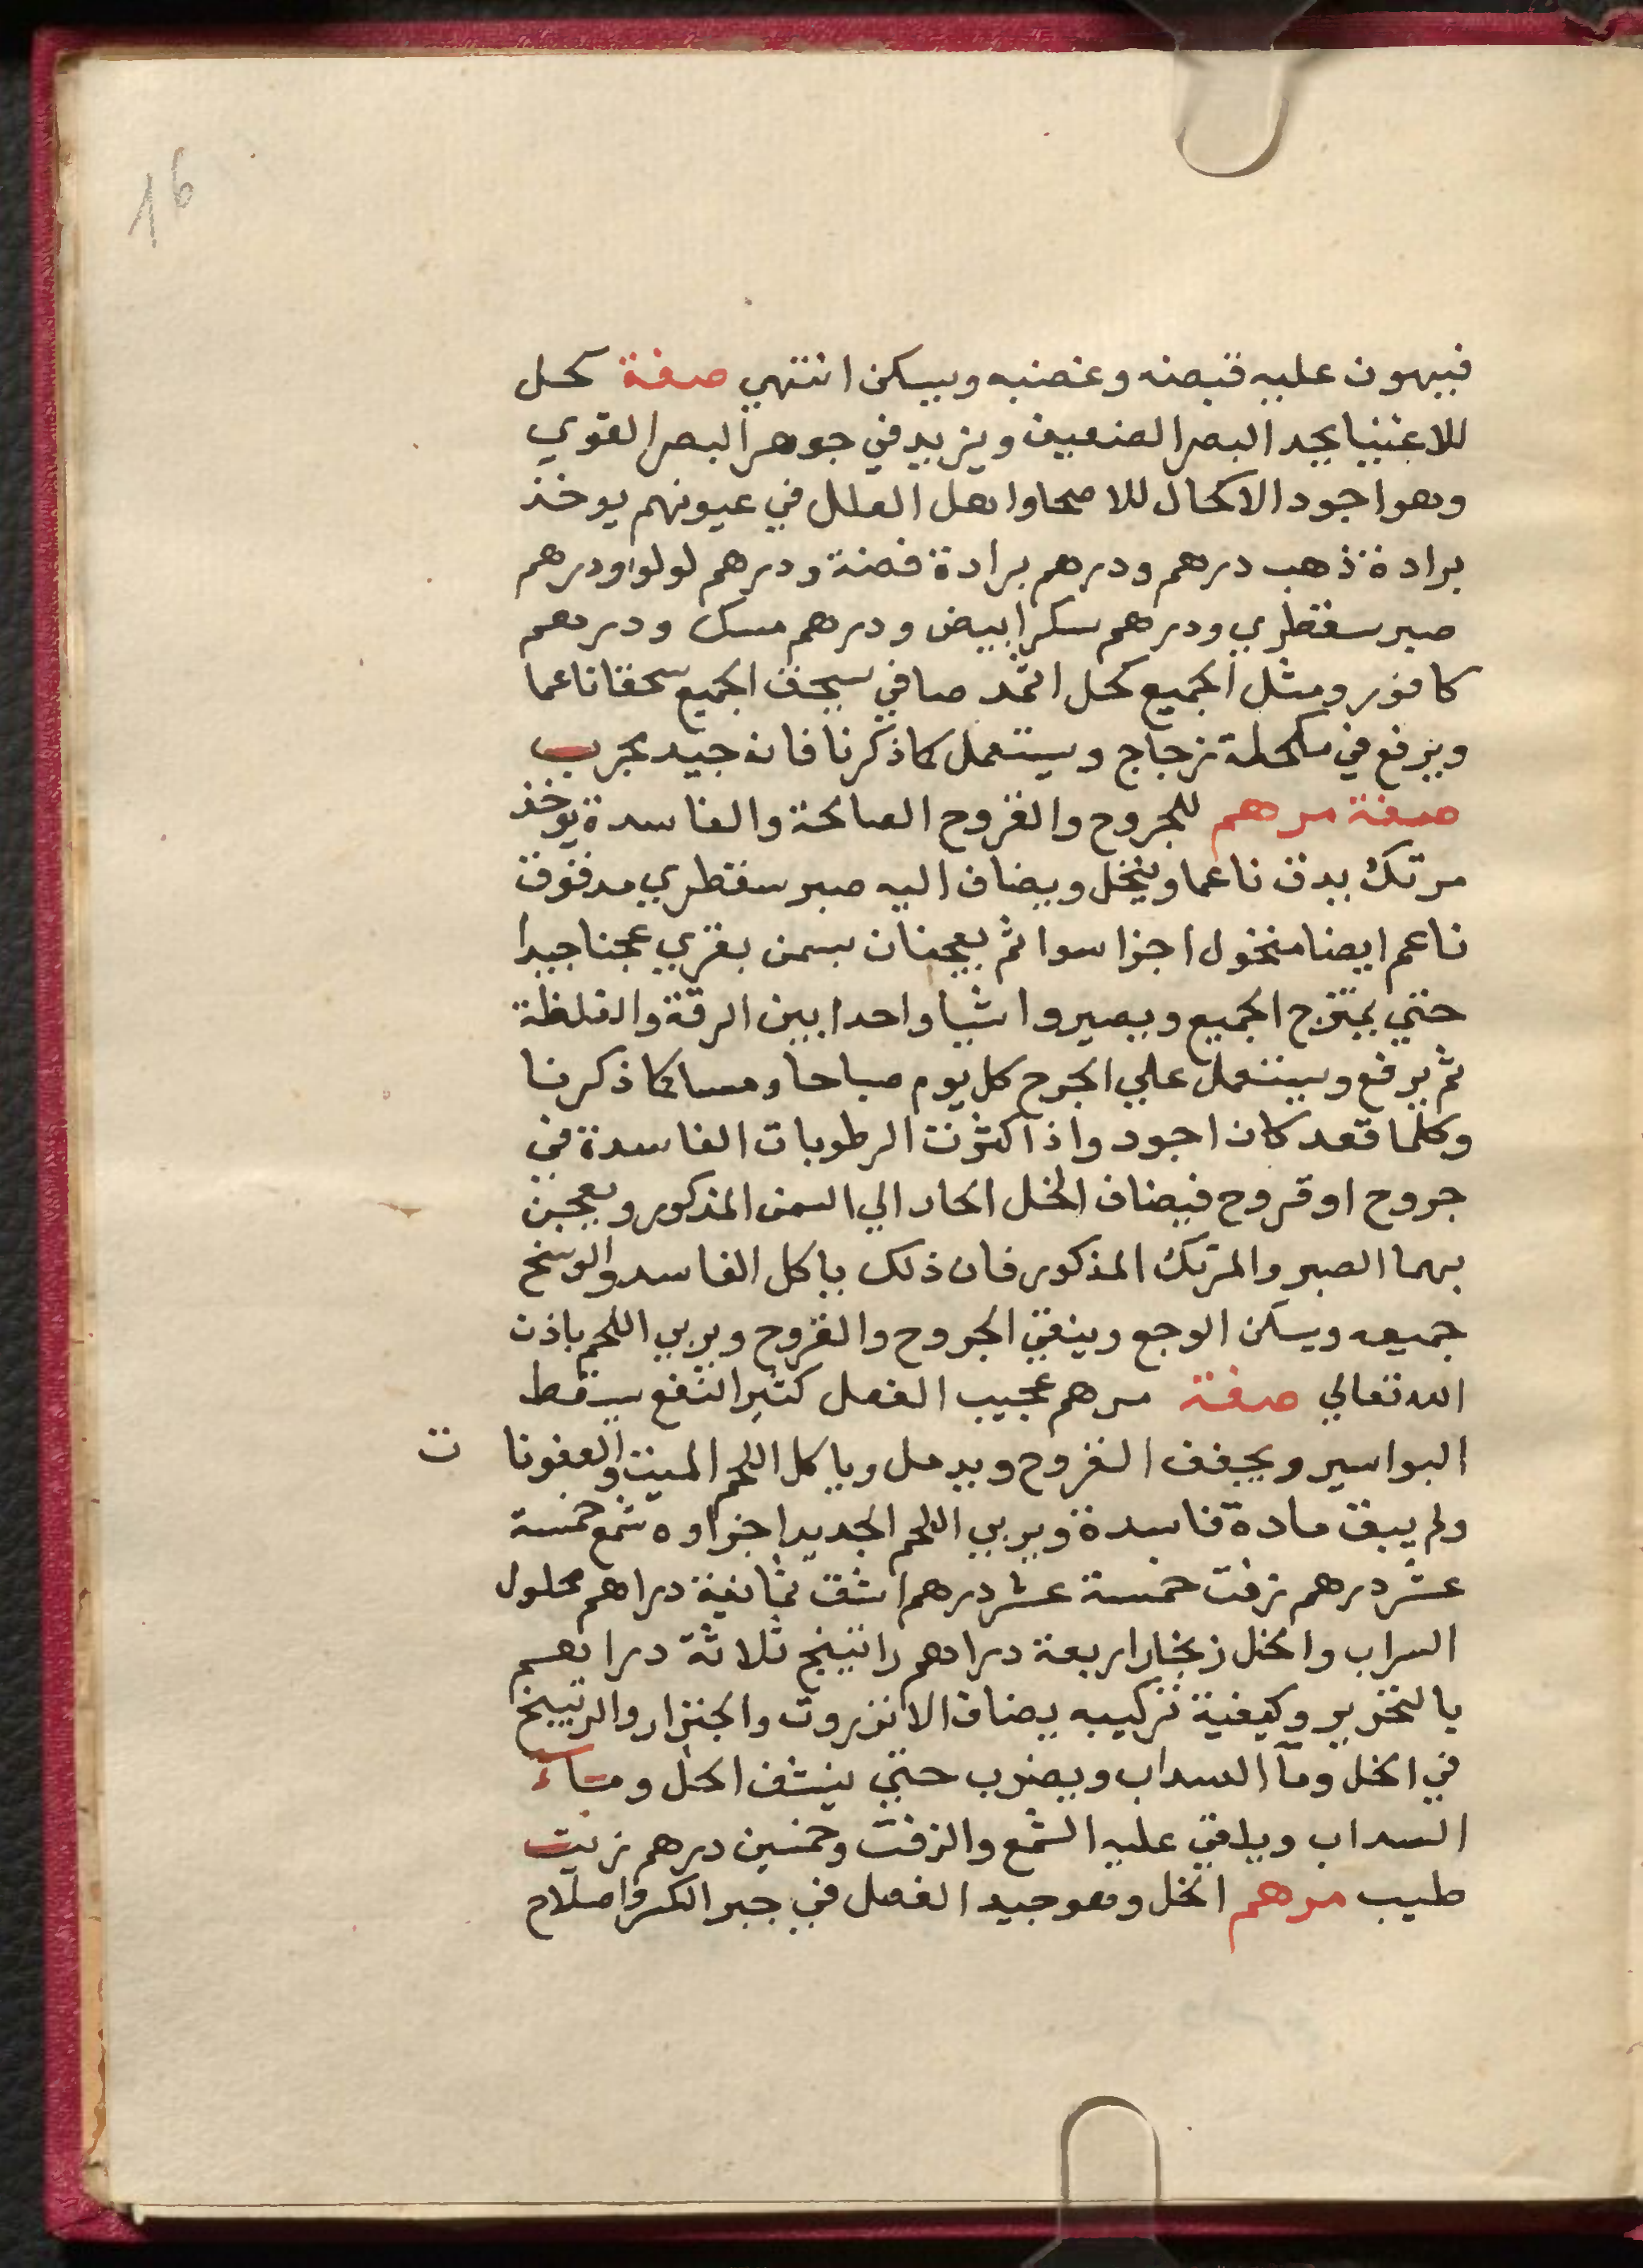 16
فيهون عليه قبضه وغضبه ويسكن انتهي صفة كحل
للاغنيا يجد البصر الضعيف ويزيد في جوهر البصر القوي
وهو اجود الاكحال للاصحا واهل العلل في عيونهم يوخذ
برادة ذهب درهم ودرهم برادة فضة ودرهم لولو ودرهم
صبر سقطري ودرهم سكر ابيض ودرهم مسك ودرهم
كافور ومثل الجميع كحل اثمد صافي يسحق الجميع سحقا ناعما
ويرفع في مكحلة زجاج ويستعمل كما ذكرنا فانه جيد مجرب
صفة مرهم للجروح والقروح الصالحة والفاسدة يوخذ
مرتك يدق ناعما وينخل ويضاف اليه صبر سقطري مدقوق
ناعم ايضا منخول اجزا سوا ثم يعجنان بسمن بقري عجنا جيدا
حتي يمتزج الجميع ويصيروا شيا واحدا بين الرقة والغلظة
ثم يرفع ويستعمل علي الجرح كل يوم صباحا ومسا كما ذكرنا
وكلما قعد كان اجود واذا كثرت الرطوبات الفاسدة في
جروح او قروح فيضاف الخل الحاد الي السمن المذكور ويعجن
بهما الصبر والمرتك المذكور فان ذلك ياكل الفاسد والوسخ
جميعه ويسكن الوجع وينقي الجروح والقروح ويربي اللحم باذن
الله تعالي صفة مرهم عجيب الفعل كثير النفع يسقط
البواسير ويجفف القروح ويدمل وياكل اللحم الميت والعفونا ت
ولم يبق مادة فاسدة ويربي اللحم الجديد اجزاوه شمع خمسة
عشر درهم زفت خمسة عشر درهم اشق ثمانية دراهم محلول
السراب والخل زنجار اربعة دراهم راتينج ثلاثة دراهم
بالتحرير وكيفية تركيبه يضاف الانزروت والجنزار والرتينج
في الخل ومآ السداب ويضرب حتي ينشف الخل ومآء
السداب ويلقي عليه الشمع والزفت وخمسين درهم زيت
طيب مرهم الخل وهو جيد الفعل في جبر الكسر واصلاح